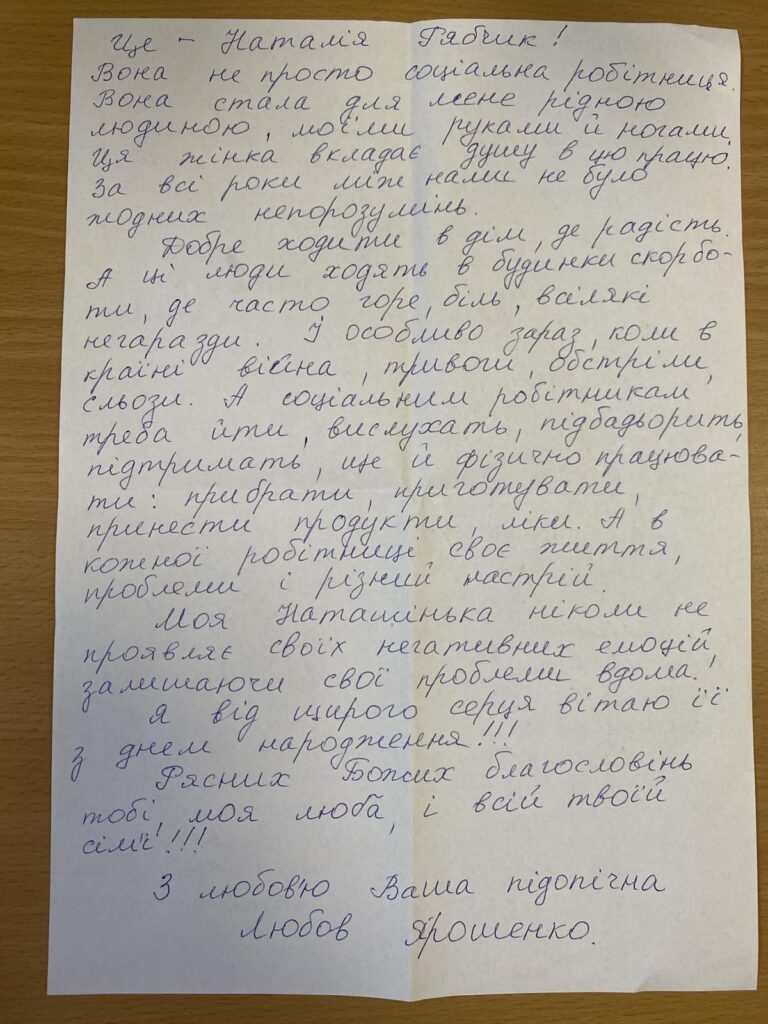 Це - Наталія Рябчик!
Вона не просто соціальна робітниця.
Вона стала для мене рідною
людиною, моїми руками й ногами.
Ця жінка вкладає душу в цю працю.
За всі роки між нами не було
жодних непорозумінь.
Добре ходити в дім, де радість.
А ці люди ходять в будинки скорбо-
ти, де часто горе, біль, всілякі
негаразди. І особливо зараз, коли в
країні війна, тривоги, обстріли,
сльози. А соціальним робітникам
треба йти, вислухать, підбадьорить,
підтримать, ще й фізично працюва-
ти: прибрати, приготувати,
принести продукти, ліки. А в
кожної робітниці своє життя,
проблеми і різний настрій.
Моя Наташінька ніколи не
проявляє своїх негативних емоцій,
залишаючи свої проблеми вдома!
Я від щирого серця вітаю її
з днем народження!!!
Рясних Божих благословінь
тобі, моя люба, і всій твоїй
сім'ї!!!
З любов'ю Ваша підопічна
Любов Ярошенко.